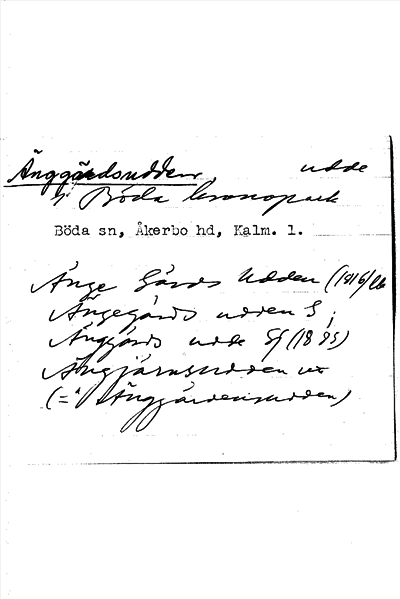 Änggärdsudden, udde
i Böda kronopark
Böda sn, Åkerbo hd, Kalm. l.
Änge Gärds Udden (1816/
Ängegärds udden S;
Änggärds udde Gf (1895)
Ängjärnsudden
(= Änggärdenjsudden)